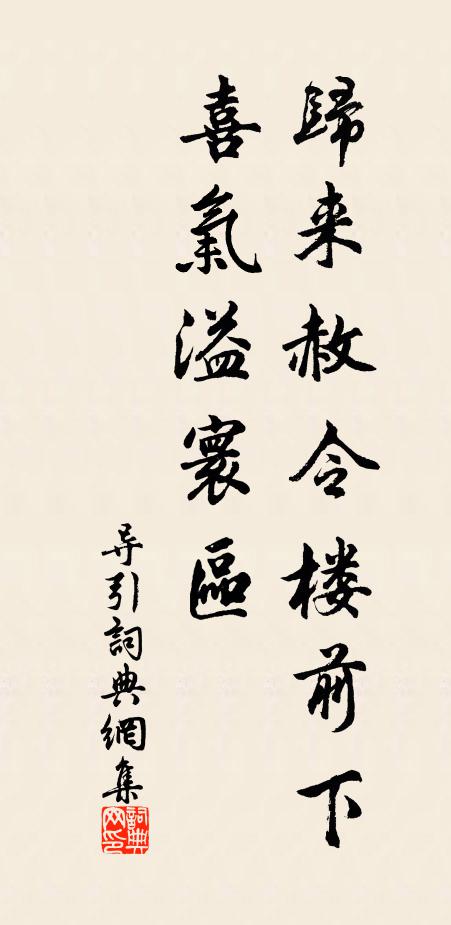 歸来赦令楼前下
喜氣溢寰區
导引詞典網集
詞典网印